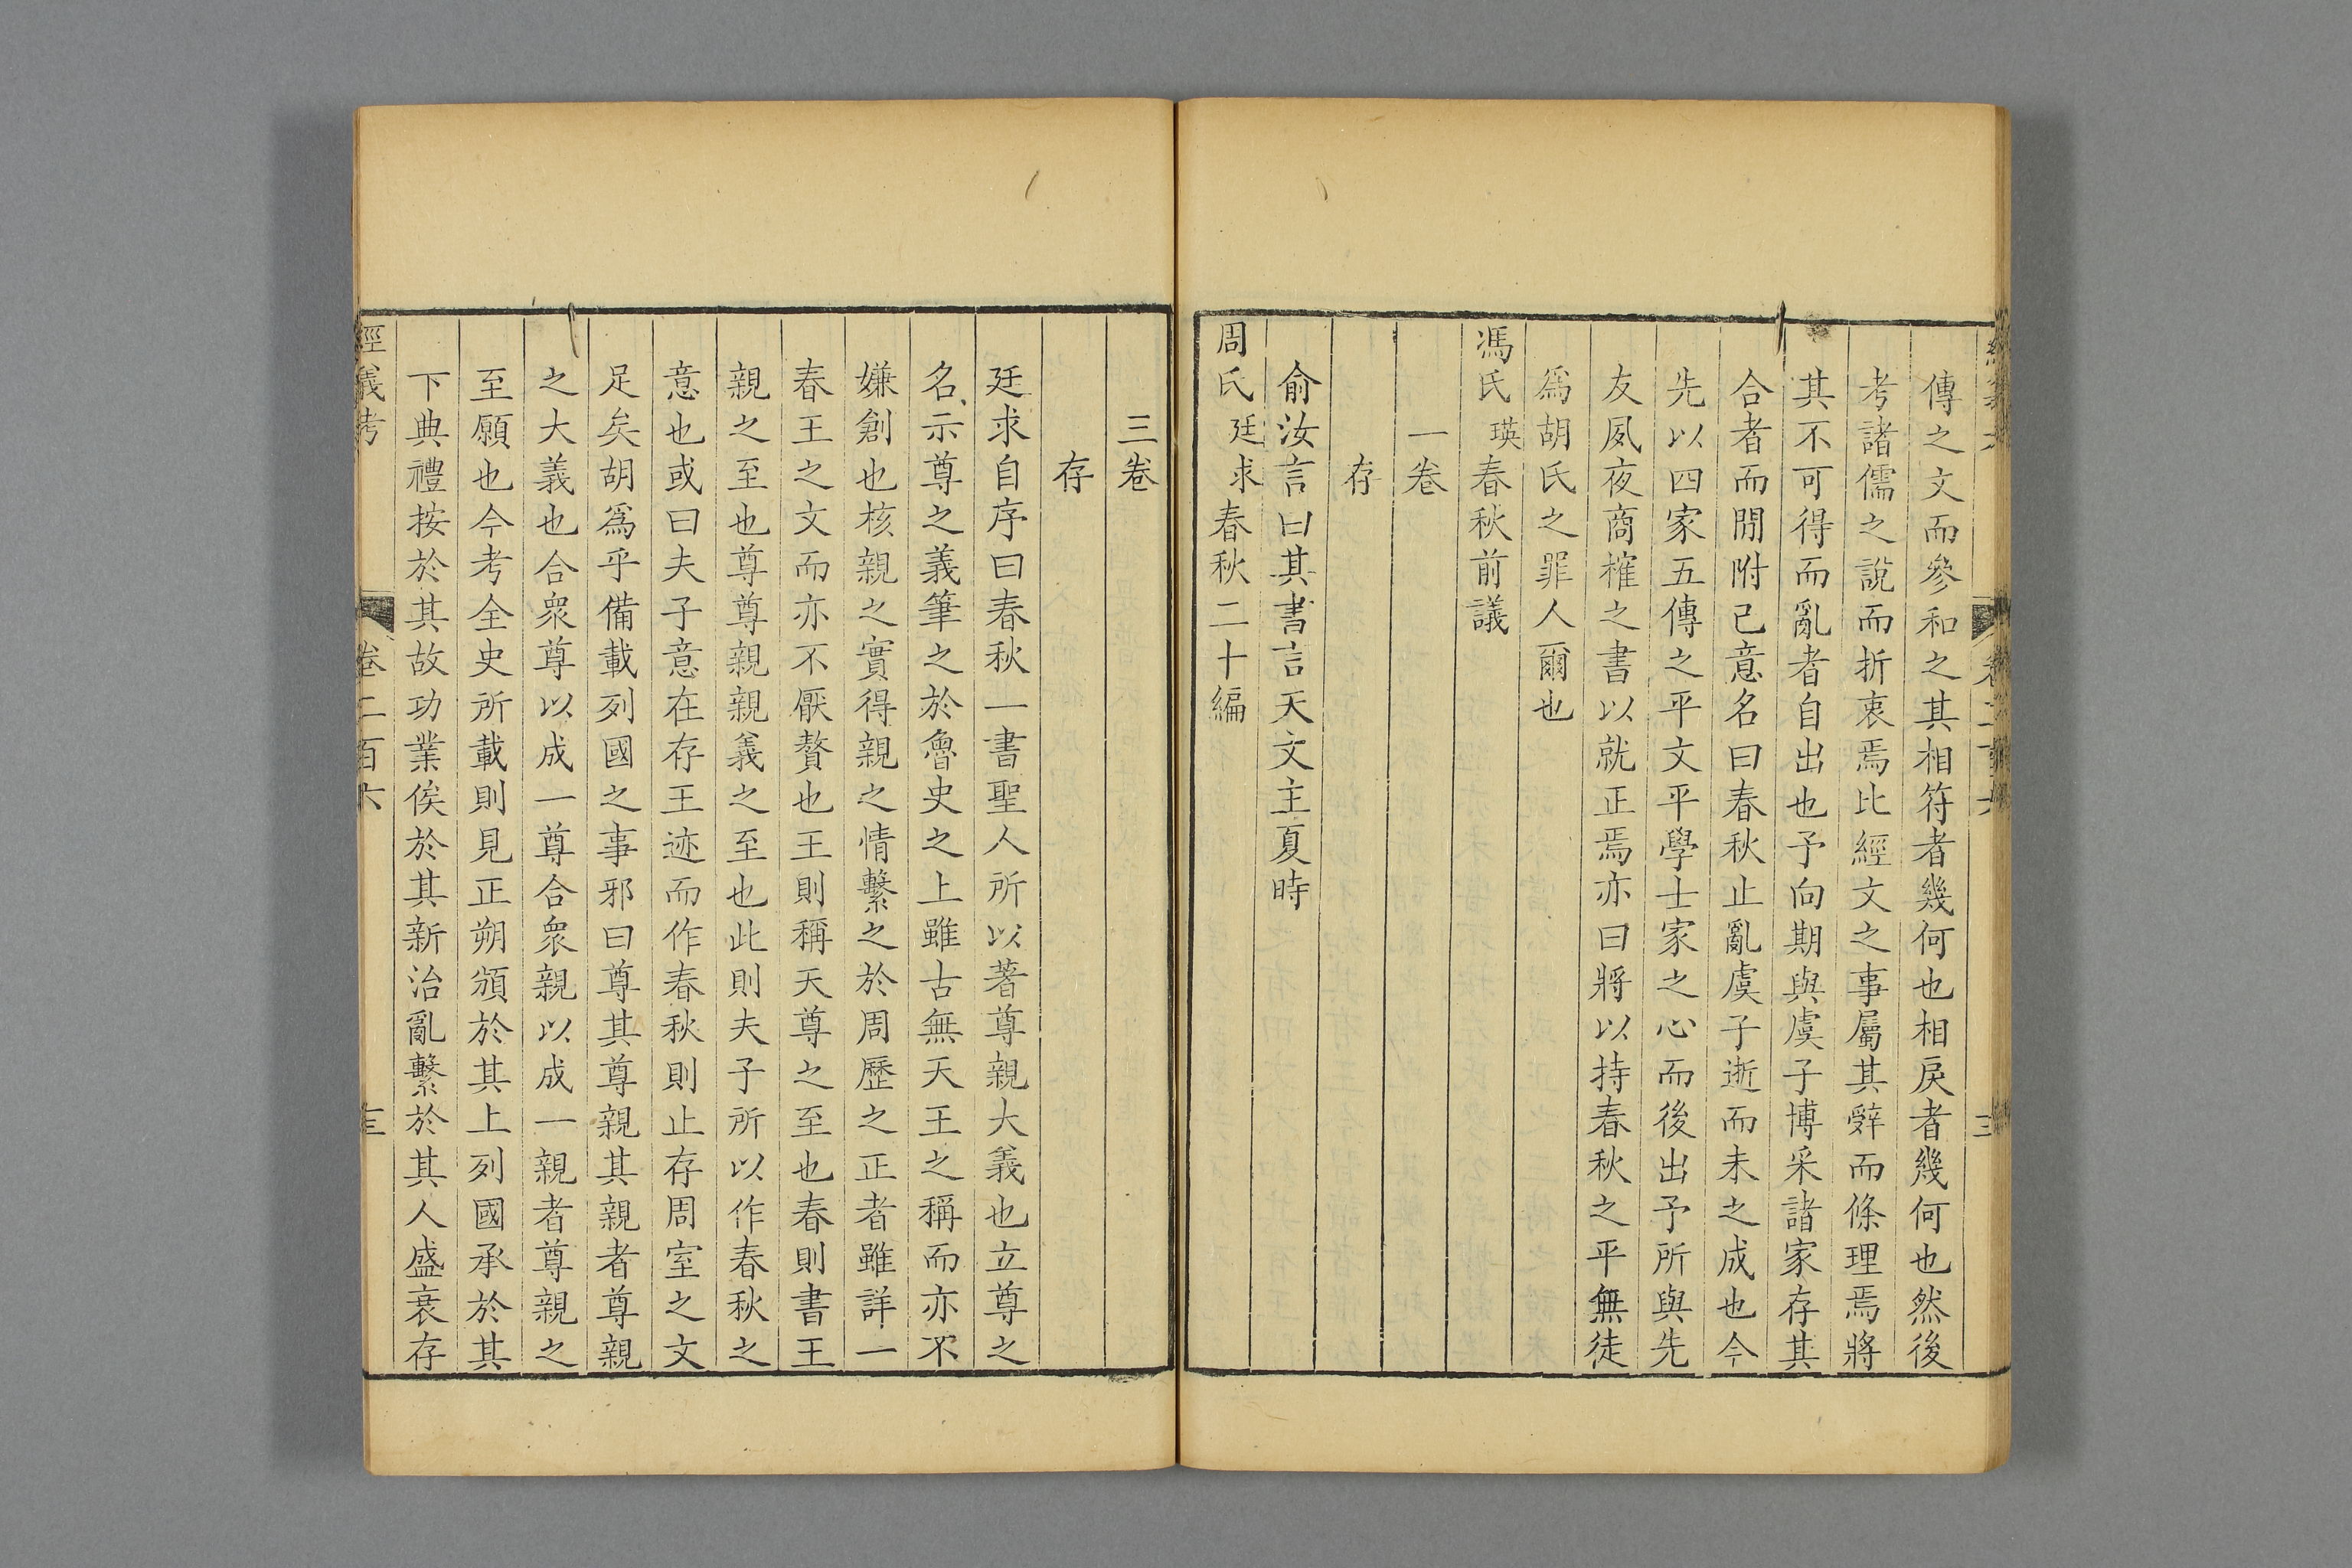 傳之文而參和之其相符者幾何也相戾者幾何也然後
考諸儒之說而折衷焉比經文之事屬其辭而條理焉將
其不可得而亂者自出也予向期與虞子博采諸家存其
合者而閒附己意名曰春秋止亂虞子逝而未之成也今
先以四家五傳之平文平學士家之心而後出予所與先
友夙夜商榷之書以就正焉亦曰將以持春秋之平無徒
爲胡氏之罪人爾也
馮氏瑛春秋前議
一卷
存
俞汝言曰其書言天文主夏時
周氏廷求春秋二十編
三卷
存
廷求自序曰春秋一書聖人所以著尊親大義也立尊之
名示尊之義筆之於魯史之上雖古無天王之稱而亦不
嫌創也核親之實得親之情繫之於周歷之正者雖詳一
春王之文而亦不厭贅也王則稱天尊之至也春則書王
親之至也尊尊親親義之至也此則夫子所以作春秋之
意也或曰夫子意在存王迹而作春秋則止存周室之文
足矣胡爲乎備載列國之事邪曰尊其尊親其親者尊親
之大義也合衆尊以成一尊合衆親以成一親者尊親之
至願也今考全史所載則見正朔頒於其上列國承於其
下典禮按於其故功業俟於其新治亂繫於其人盛衰存
經義考 卷二百六 三